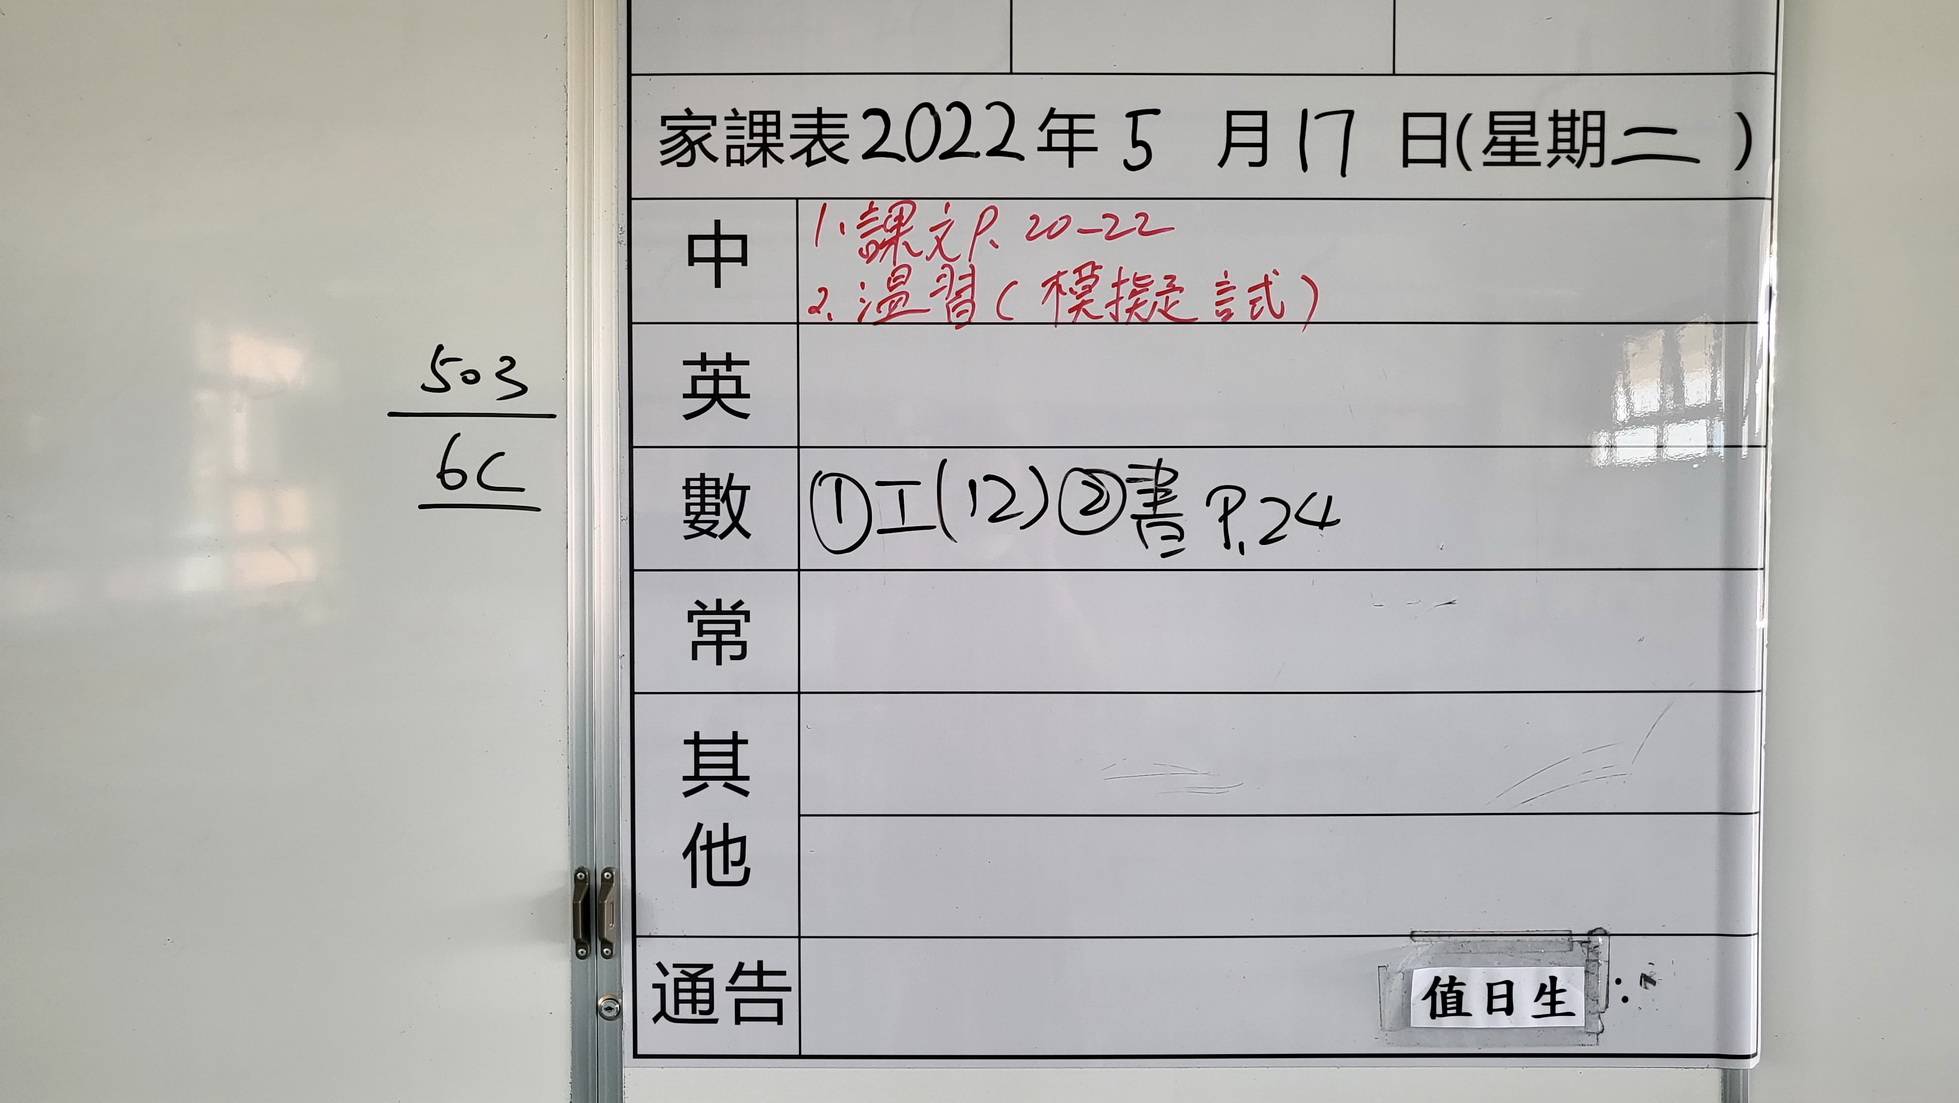 503
6C
家課表2022年5月17日(星期二)
中
1.課文P.20-22
2.溫習(模擬試)
英
數
①工(12)②書P.24
常
其他
通告
值日生: